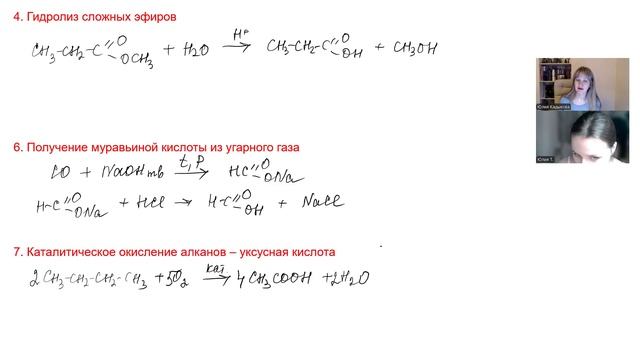 4. Гидролиз сложных эфиров
CH₃-CH₂-C=O OCH₃ + H₂O → H⁺ CH₃-CH₂-C=O OH + CH₃OH
6. Получение муравьиной кислоты из угарного газа
CO + NaOH тв → t, P HC=O ONa
H-C=O ONa + HCl → H-C=O OH + NaCl
7. Каталитическое окисление алканов – уксусная кислота
2CH₃-CH₂-CH₂-CH₃ + 5O₂ → кат 4CH₃COOH + 2H₂O
Юлия Т.